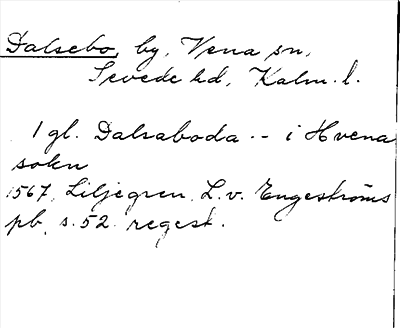 Dalsebo, by, Vena sn,
Sevede hd, Kalm. l.
1 gl. Dalsaboda -- i Hvena
sokn
1567, Liljegren, L. v. Engeströms
pb, s. 52. regest.